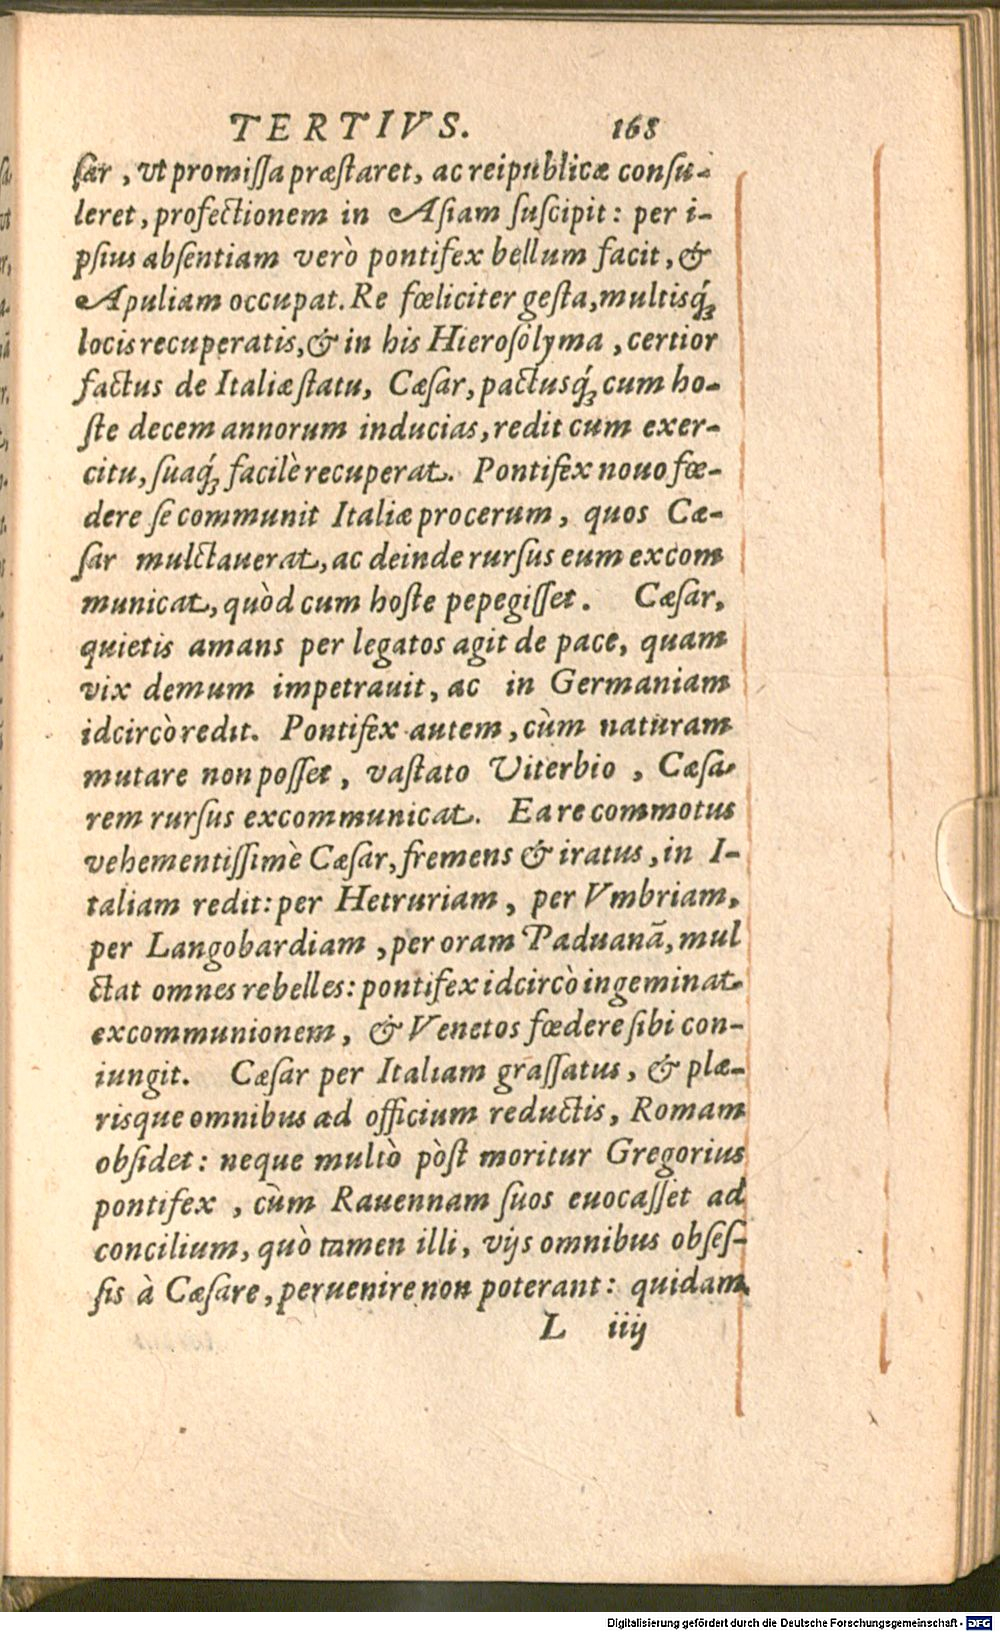 TERTIVS. 168
ſar, vt promiſſa præſtaret, ac reipublicæ conſu-
leret, profectionem in Aſiam ſuſcipit: per i-
pſius abſentiam verò pontifex bellum facit, &
Apuliam occupat. Re fœliciter geſta, multisq́;
locis recuperatis, & in his Hieroſolyma, certior
factus de Italiæ ſtatu, Cæſar, pactusq́; cum ho-
ſte decem annorum inducias, redit cum exer-
citu, ſuaq́; facilè recuperat. Pontifex nouo fœ-
dere ſe communit Italiæ procerum, quos Cæ-
ſar mulctauerat, ac deinde rurſus eum excom
municat, quòd cum hoſte pepegiſſet. Cæſar,
quietis amans per legatos agit de pace, quam
vix demum impetrauit, ac in Germaniam
idcircò redit. Pontifex autem, cùm naturam
mutare non poſſet, vaſtato Viterbio, Cæſa-
rem rurſus excommunicat. Ea re commotus
vehementiſſimè Cæſar, fremens & iratus, in I-
taliam redit: per Hetruriam, per Vmbriam,
per Langobardiam, per oram Paduanā, mul
ctat omnes rebelles: pontifex idcircò ingeminat
excommunionem, & Venetos fœdere ſibi con-
iungit. Cæſar per Italiam graſſatus, & plæ-
risque omnibus ad officium reductis, Romam
obſidet: neque multò pòſt moritur Gregorius
pontifex, cùm Rauennam ſuos euocaſſet ad
concilium, quò tamen illi, vijs omnibus obſeſ-
ſis à Cæſare, peruenire non poterant: quidam
L iiij
Digitalisierung gefördert durch die Deutsche Forschungsgemeinschaft - DFG